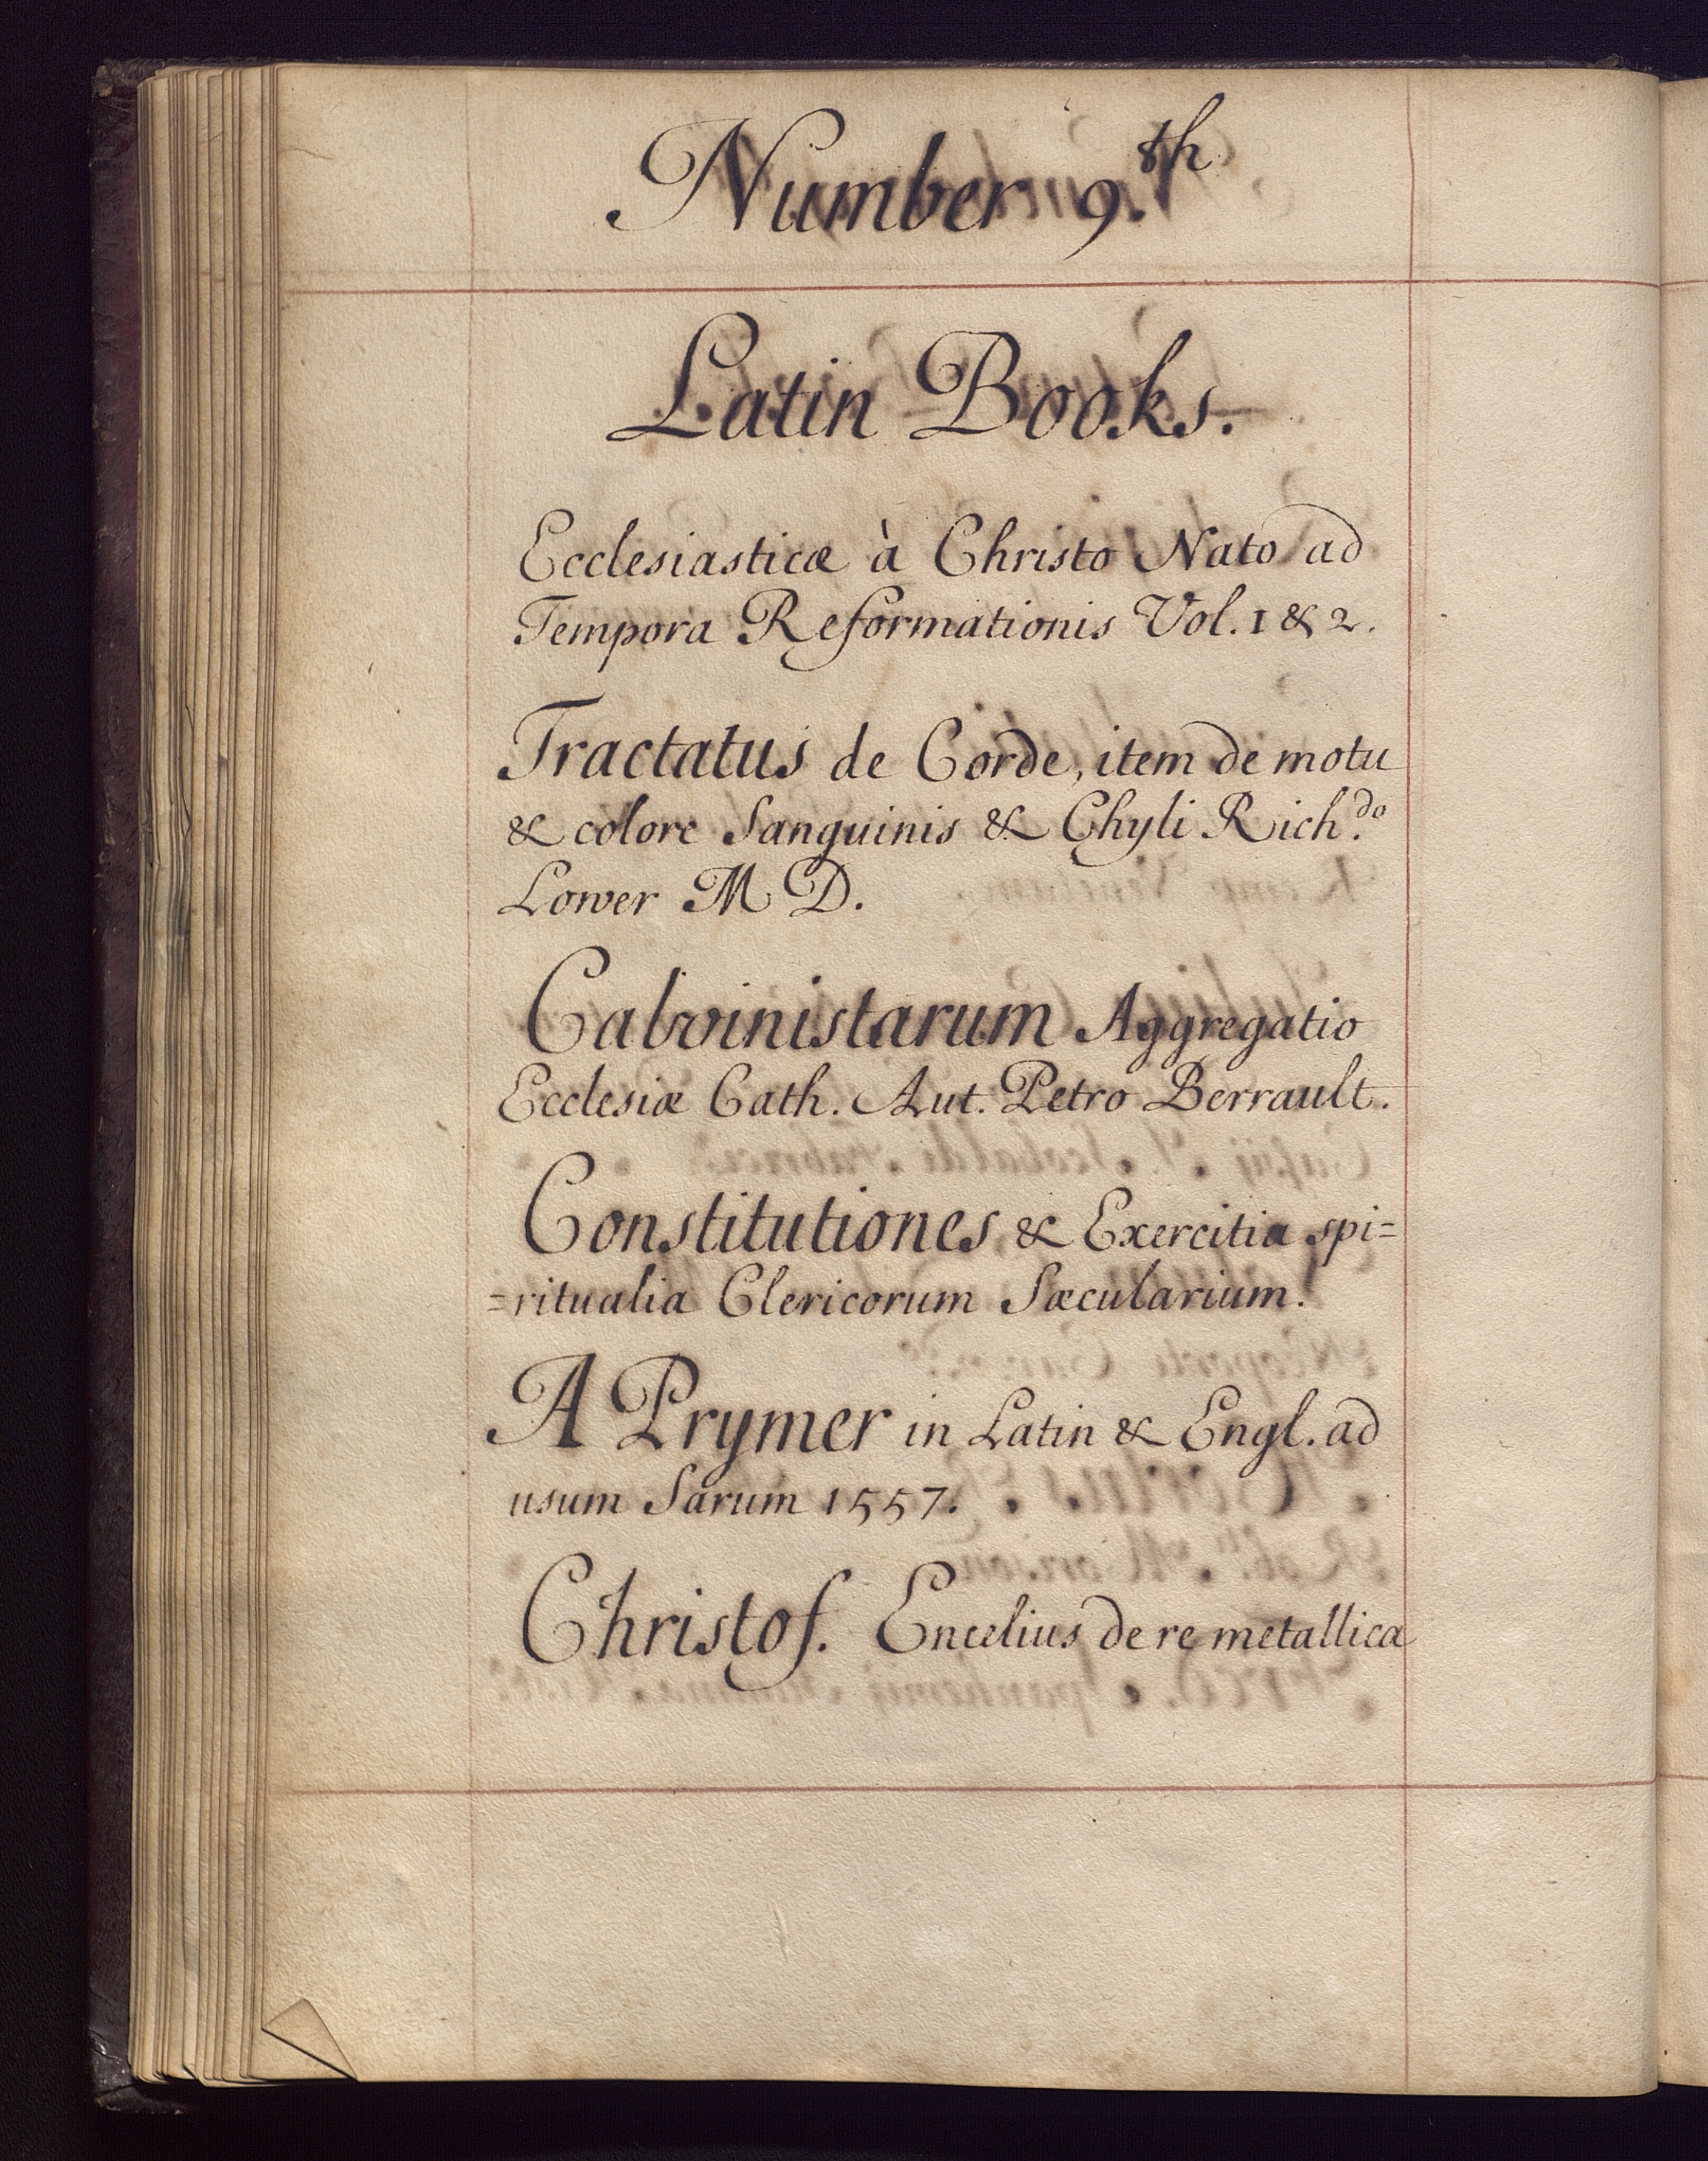 Number 9.th
Latin Books.
Ecclesiasticæ à Christo Nato ad
Tempora Reformationis Vol. 1 & 2.
Tractatus de Corde, item de motu
& colore Sanguinis & Chyli Rich.do
Lower M D.
Calvinistarum Aggregatio
Ecclesiæ Cath. Aut. Petro Berrault.
Constitutiones & Exercitia spi=
=ritualia Clericorum Sæcularium.
A Prymer in Latin & Engl. ad
usum Sarum 1557.
Christof. Encelius de re metallica